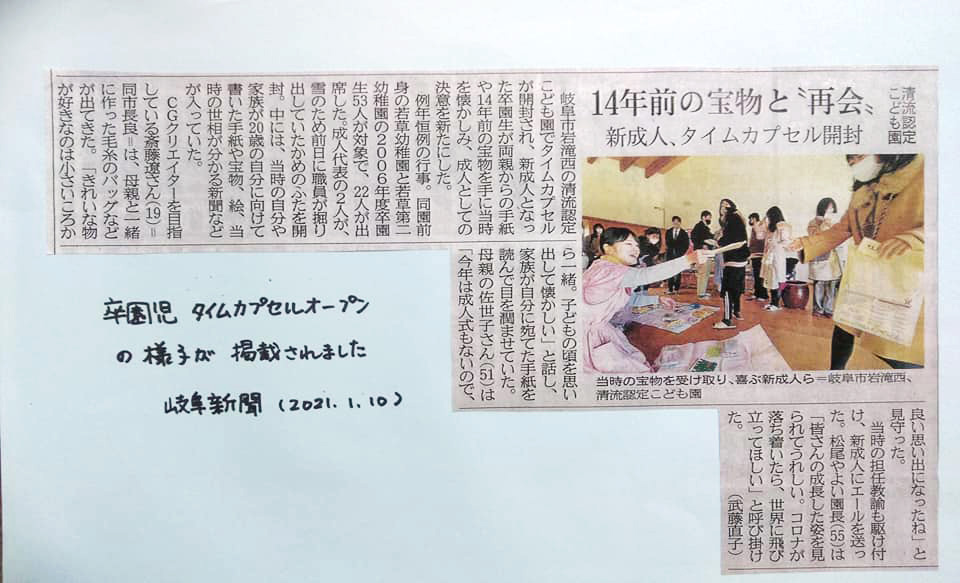 清流認定
こども園
14年前の宝物と〝再会〟
新成人、タイムカプセル開封
岐阜市岩滝西の清流認定
こども園でタイムカプセル
が開封され、新成人となっ
た卒園生が両親からの手紙
や14年前の宝物を手に当時
を懐かしみ、成人としての
決意を新たにした。
例年恒例の行事。同園前
身の若草幼稚園と若草第二
幼稚園の2006年度卒園
生53人が対象で、22人が出
席した。成人代表の2人が、
雪のため前日に職員が掘り
出していたかめのふたを開
封。中には、当時の自分や
家族が20歳の自分に向けて
書いた手紙や宝物、絵、当
時の世相が分かる新聞など
が入っていた。
CGクリエイターを目指
している斎藤遼さん(19)=
同市長良=は、母親と一緒
に作った毛糸のバッグなど
が出てきた。「きれいな物
が好きなのは小さいころか
ら一緒。子どもの頃を思い
出して懐かしい」と話し、
家族が自分に宛てた手紙を
読んで目を潤ませていた。
母親の佐世子さん(51)は
「今年は成人式もないので、
良い思い出になったね」と
見守った。
当時の担任教諭も駆け付
け、新成人にエールを送っ
た。松尾やよい園長(55)は
「皆さんの成長した姿を見
られてうれしい。コロナが
落ち着いたら、世界に飛び
立ってほしい」と呼び掛け
た。(武藤直子)
当時の宝物を受け取り、喜ぶ新成人ら=岐阜市岩滝西、
清流認定こども園
卒園児 タイムカプセルオープン
の様子が 掲載されました
岐阜新聞 (2021.1.10)